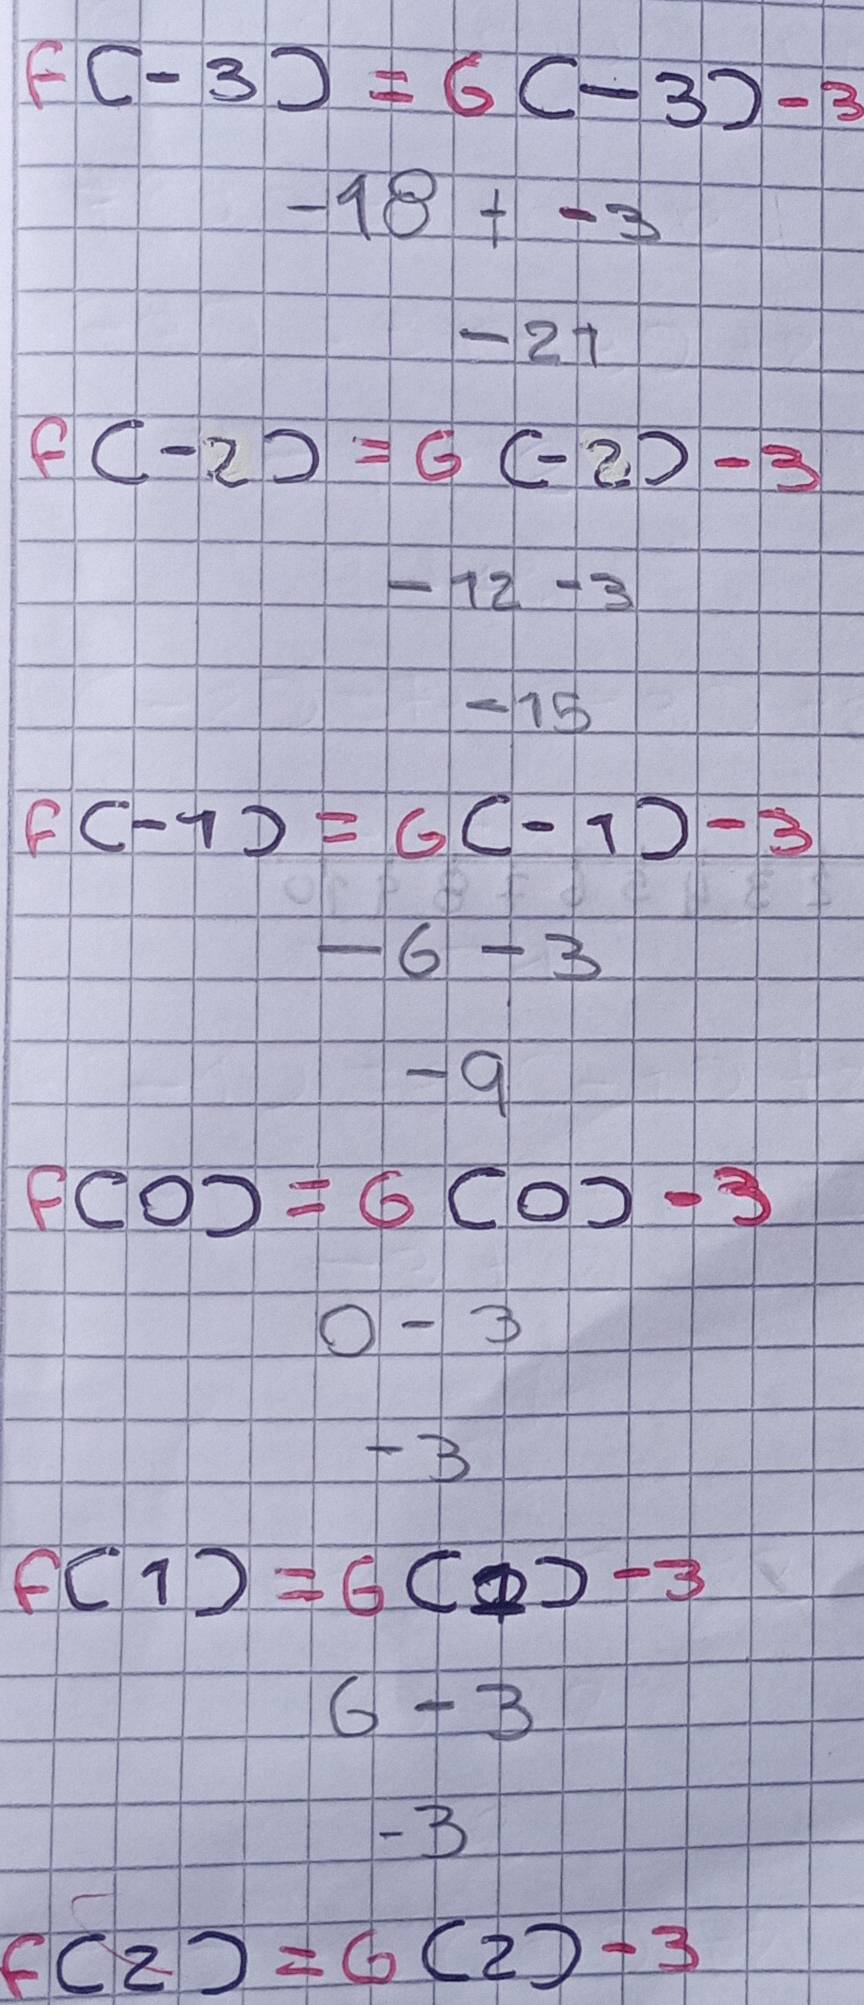 f(-3) = 6(-3) - 3
-18 + -3
-21
f(-2) = 6(-2) - 3
-12 - 3
-15
f(-1) = 6(-1) - 3
-6 - 3
-9
f(0) = 6(0) - 3
0 - 3
-3
f(1) = 6(1) - 3
6 - 3
-3
f(2) = 6(2) - 3